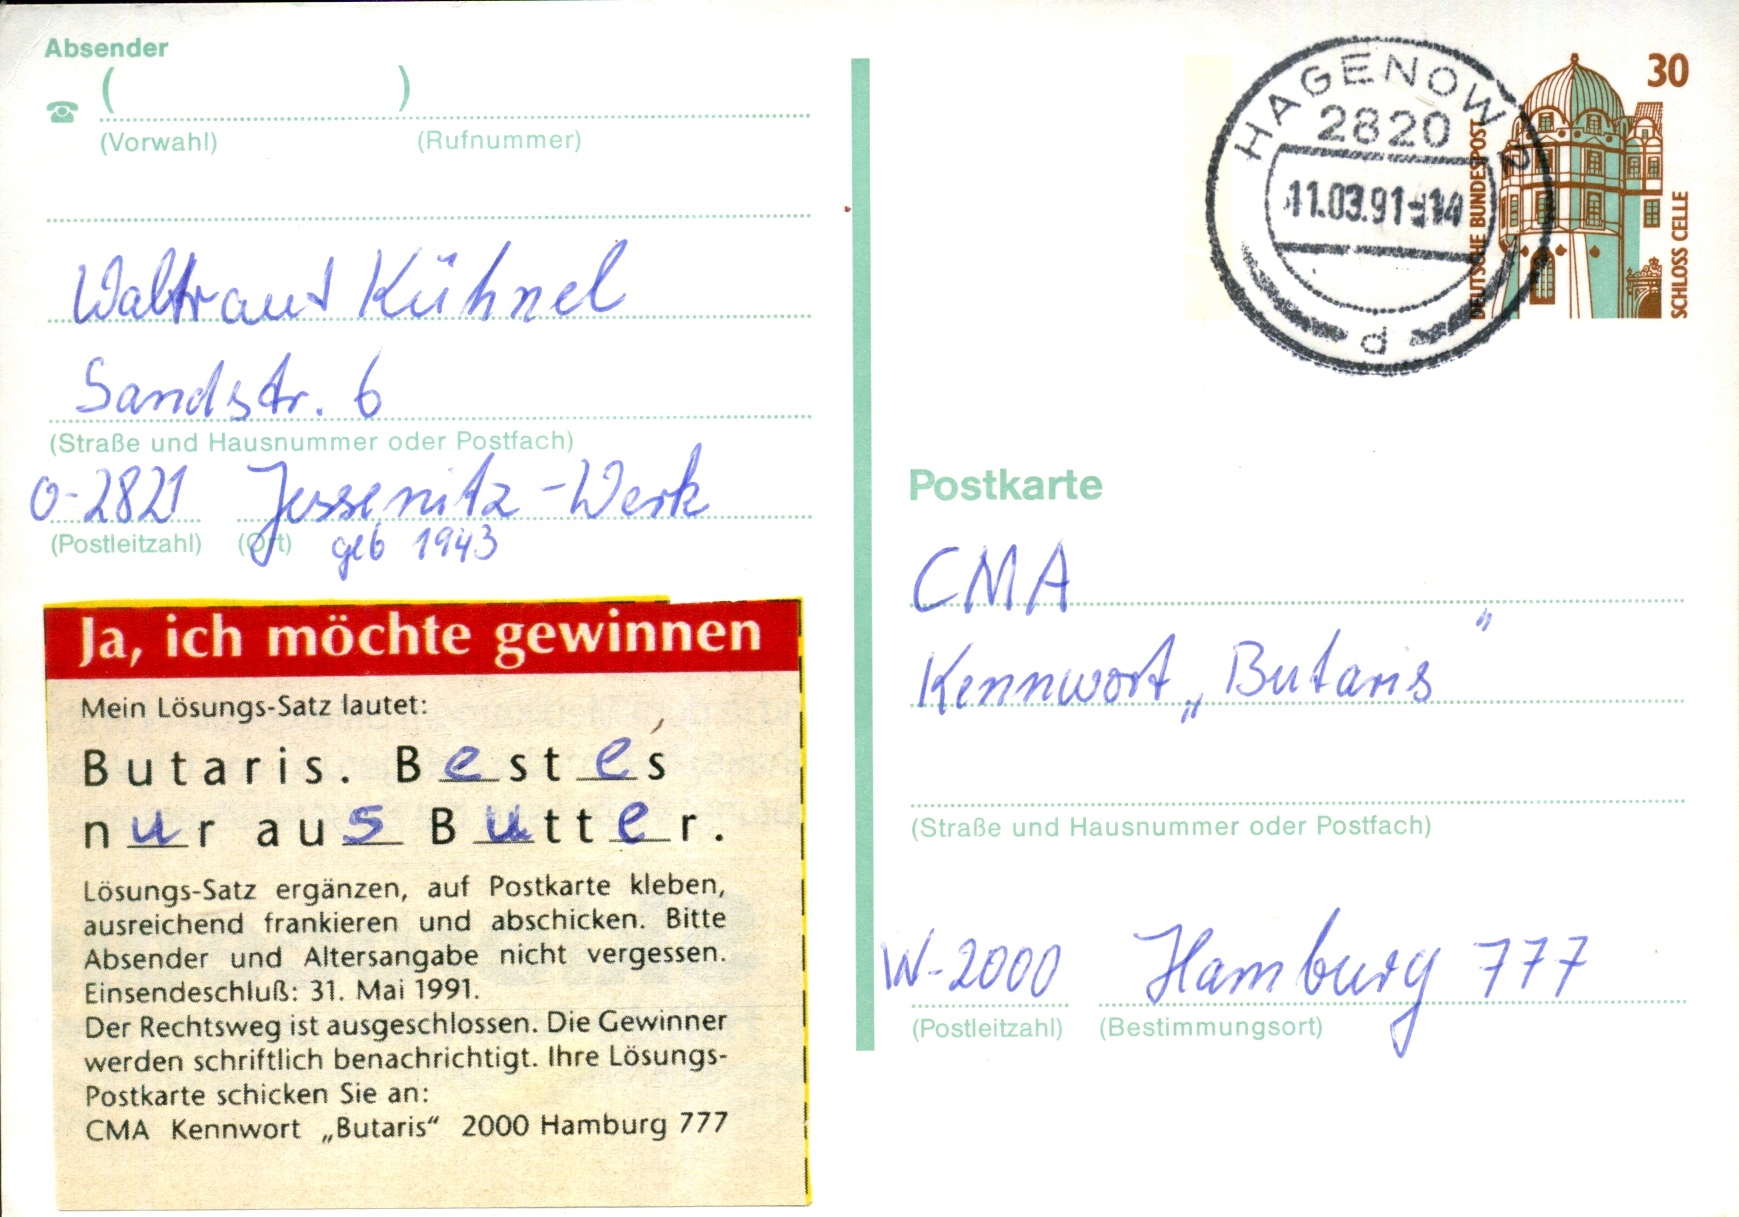 Absender
( )
(Vorwahl) (Rufnummer)
Waltraut Kühnel
Sandstr. 6
(Straße und Hausnummer oder Postfach)
O-2821 Jessenitz-Werk
(Postleitzahl) (Ort) geb 1943
Ja, ich möchte gewinnen
Mein Lösungs-Satz lautet:
Butaris. Bestes
nur aus Butter.
Lösungs-Satz ergänzen, auf Postkarte kleben,
ausreichend frankieren und abschicken. Bitte
Absender und Altersangabe nicht vergessen.
Einsendeschluß: 31. Mai 1991.
Der Rechtsweg ist ausgeschlossen. Die Gewinner
werden schriftlich benachrichtigt. Ihre Lösungs-
Postkarte schicken Sie an:
CMA Kennwort „Butaris“ 2000 Hamburg 777
HAGENOW 2
2820
11.03.91
d
30
DEUTSCHE BUNDESPOST
SCHLOSS CELLE
Postkarte
CMA
Kennwort „Butaris"
(Straße und Hausnummer oder Postfach)
W-2000 Hamburg 777
(Postleitzahl) (Bestimmungsort)